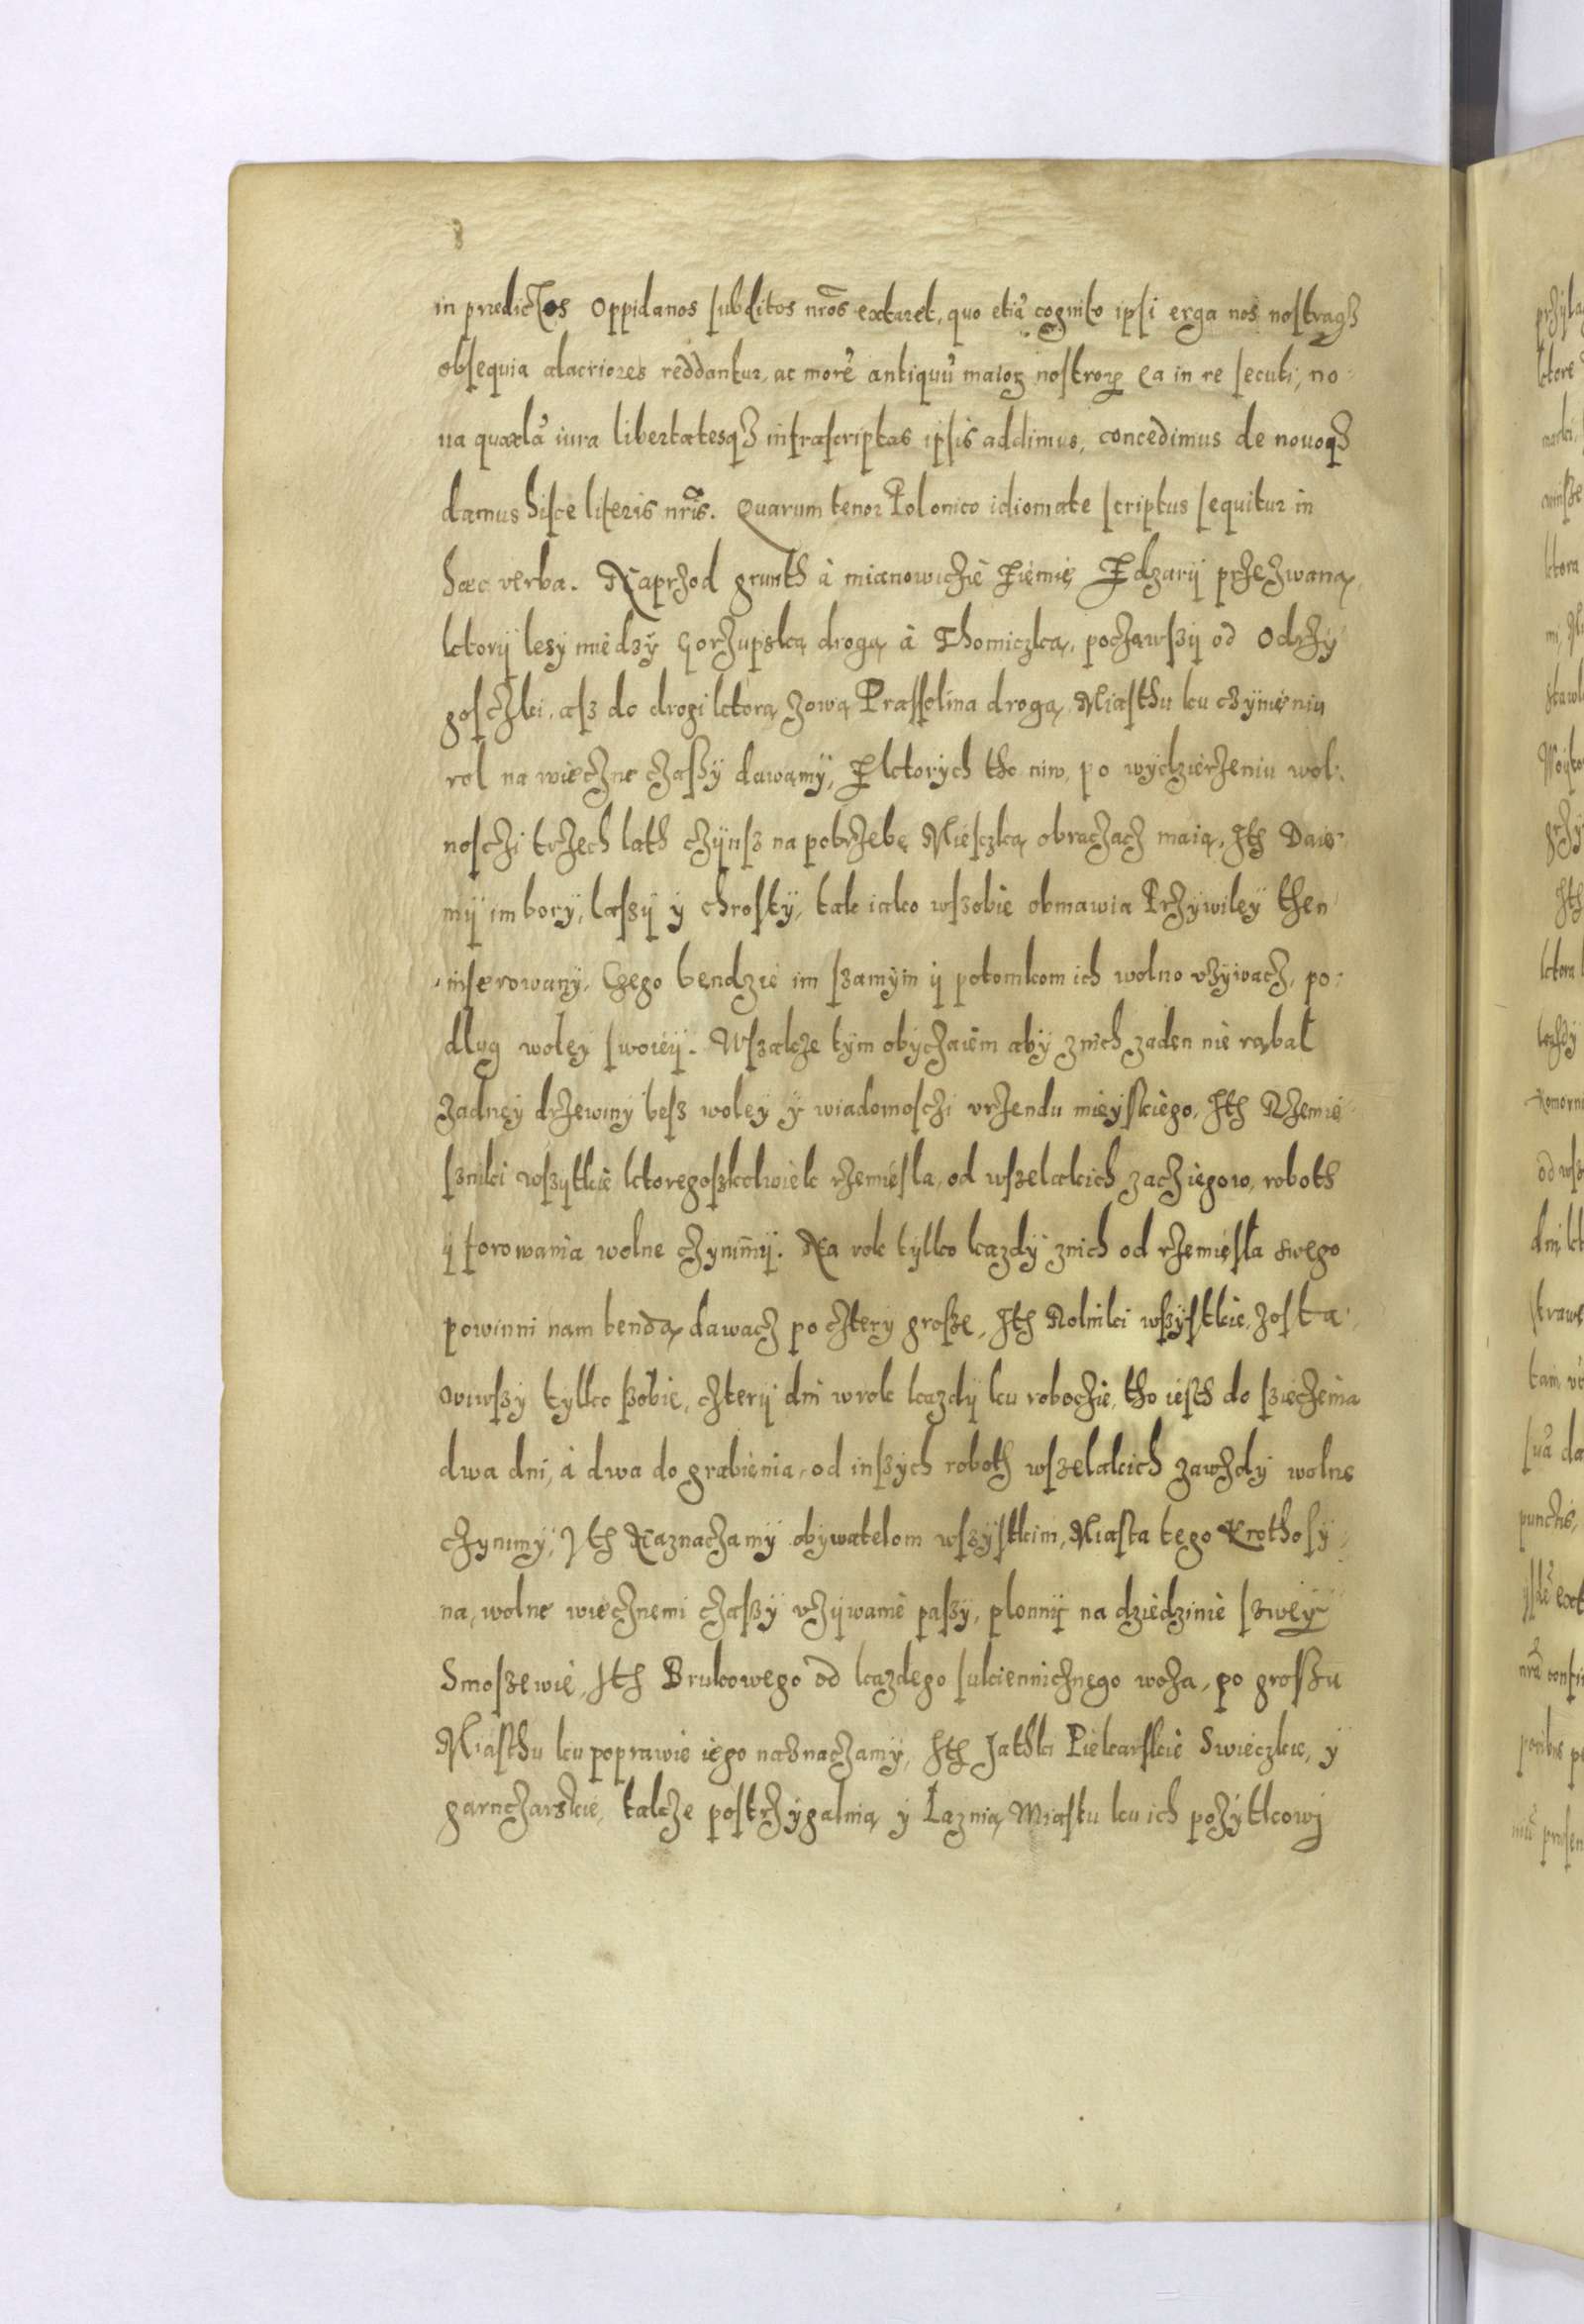 in prædictos Oppidanos subditos nr̃os extaret, quo etiã cognito ipsi erga nos nostraqȝ
obsequia alacriores reddantur, ac morẽ antiquũ maioꝝ nostroꝝ ea in re secuti, no-
ua quædã iura libertatesqȝ infrascriptas ipsis addimus, concedimus de nouoqȝ
damus hisce literis nr̃is. Quarum tenor Polonico idiomate scriptus sequitur in
hæc verba. Naprzod grunth à mianowiczié Ziemię Zdzarÿ przezwaną,
ktorÿ lesÿ miedzÿ Gorzupską drogą à Thomiczką, począwszÿ od Odrzÿ
goszczki, asz do drogi ktorą zową Prassolina droga, Miasthu ku czÿnieniu
rol na wieczne czassÿ dawamÿ, Z ktorÿch tho niw, po wÿdzierzeniu wol-
nosczi trzech lath czÿnsz na potrzebę Miesczką obraczacz maią. Ith Daie-
mÿ im borÿ, laszÿ ÿ chrostÿ, tak iako wszobie obmawia Przÿwileÿ then
inserowanÿ. Czego bendzie im szamÿm ÿ potomkom ich wolno vzÿwacz, po-
dlug woleÿ swoieÿ. Wszakze tÿm obÿczaiem abÿ znich zaden nie rąbał
Zadneÿ drzewinÿ besz woleÿ ÿ wiadomosczi vrzendu mieÿskiego. Ith Rzemie
sznikÿ wszÿtkie ktoregoszkolwiek rzemiesla, od wszelakich zacziegow, roboth
ÿ forowania wolne czÿnimÿ. Na rok tÿlko kazdÿ znich od rzemiesła swego
powinni nam bendą dawacz po czterÿ grosze, Ith Rolniki wszÿstkie, zosta-
viwszÿ tÿlko szobie, czterÿ dni w rok kazdÿ ku roboczie, tho iesth do szieczenia
dwa dni, à dwa do grabienia, od inszÿch roboth wszelakich zawzdÿ wolne
czÿnimÿ, Ith Naznaczamÿ obÿwatelom wszÿstkim, Miasta tego Krothosÿ-
na, wolne wiecznemi czassÿ vzÿwanie paszÿ, plonnÿ na dziedzinie szweÿ
Smoszewie, Ith Brukowego od kazdego sukiennicznego woza, po grosszu
Miasthu ku poprawie iego naznaczamÿ, Ith Jathki Piekarskie Swieczkie, ÿ
garnczarskie, takze postrzÿgalnią ÿ Łaznią Miastu ku ich pozÿtkowj